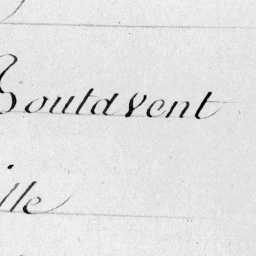 Boutdvent
lle